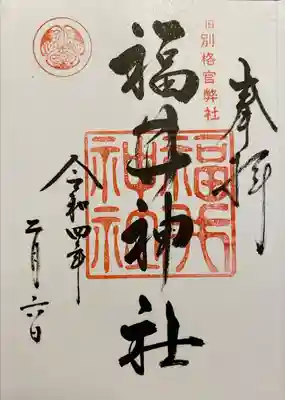 奉拝
旧別格官幣社
福井神社
福井
神社
令和四年
二月六日